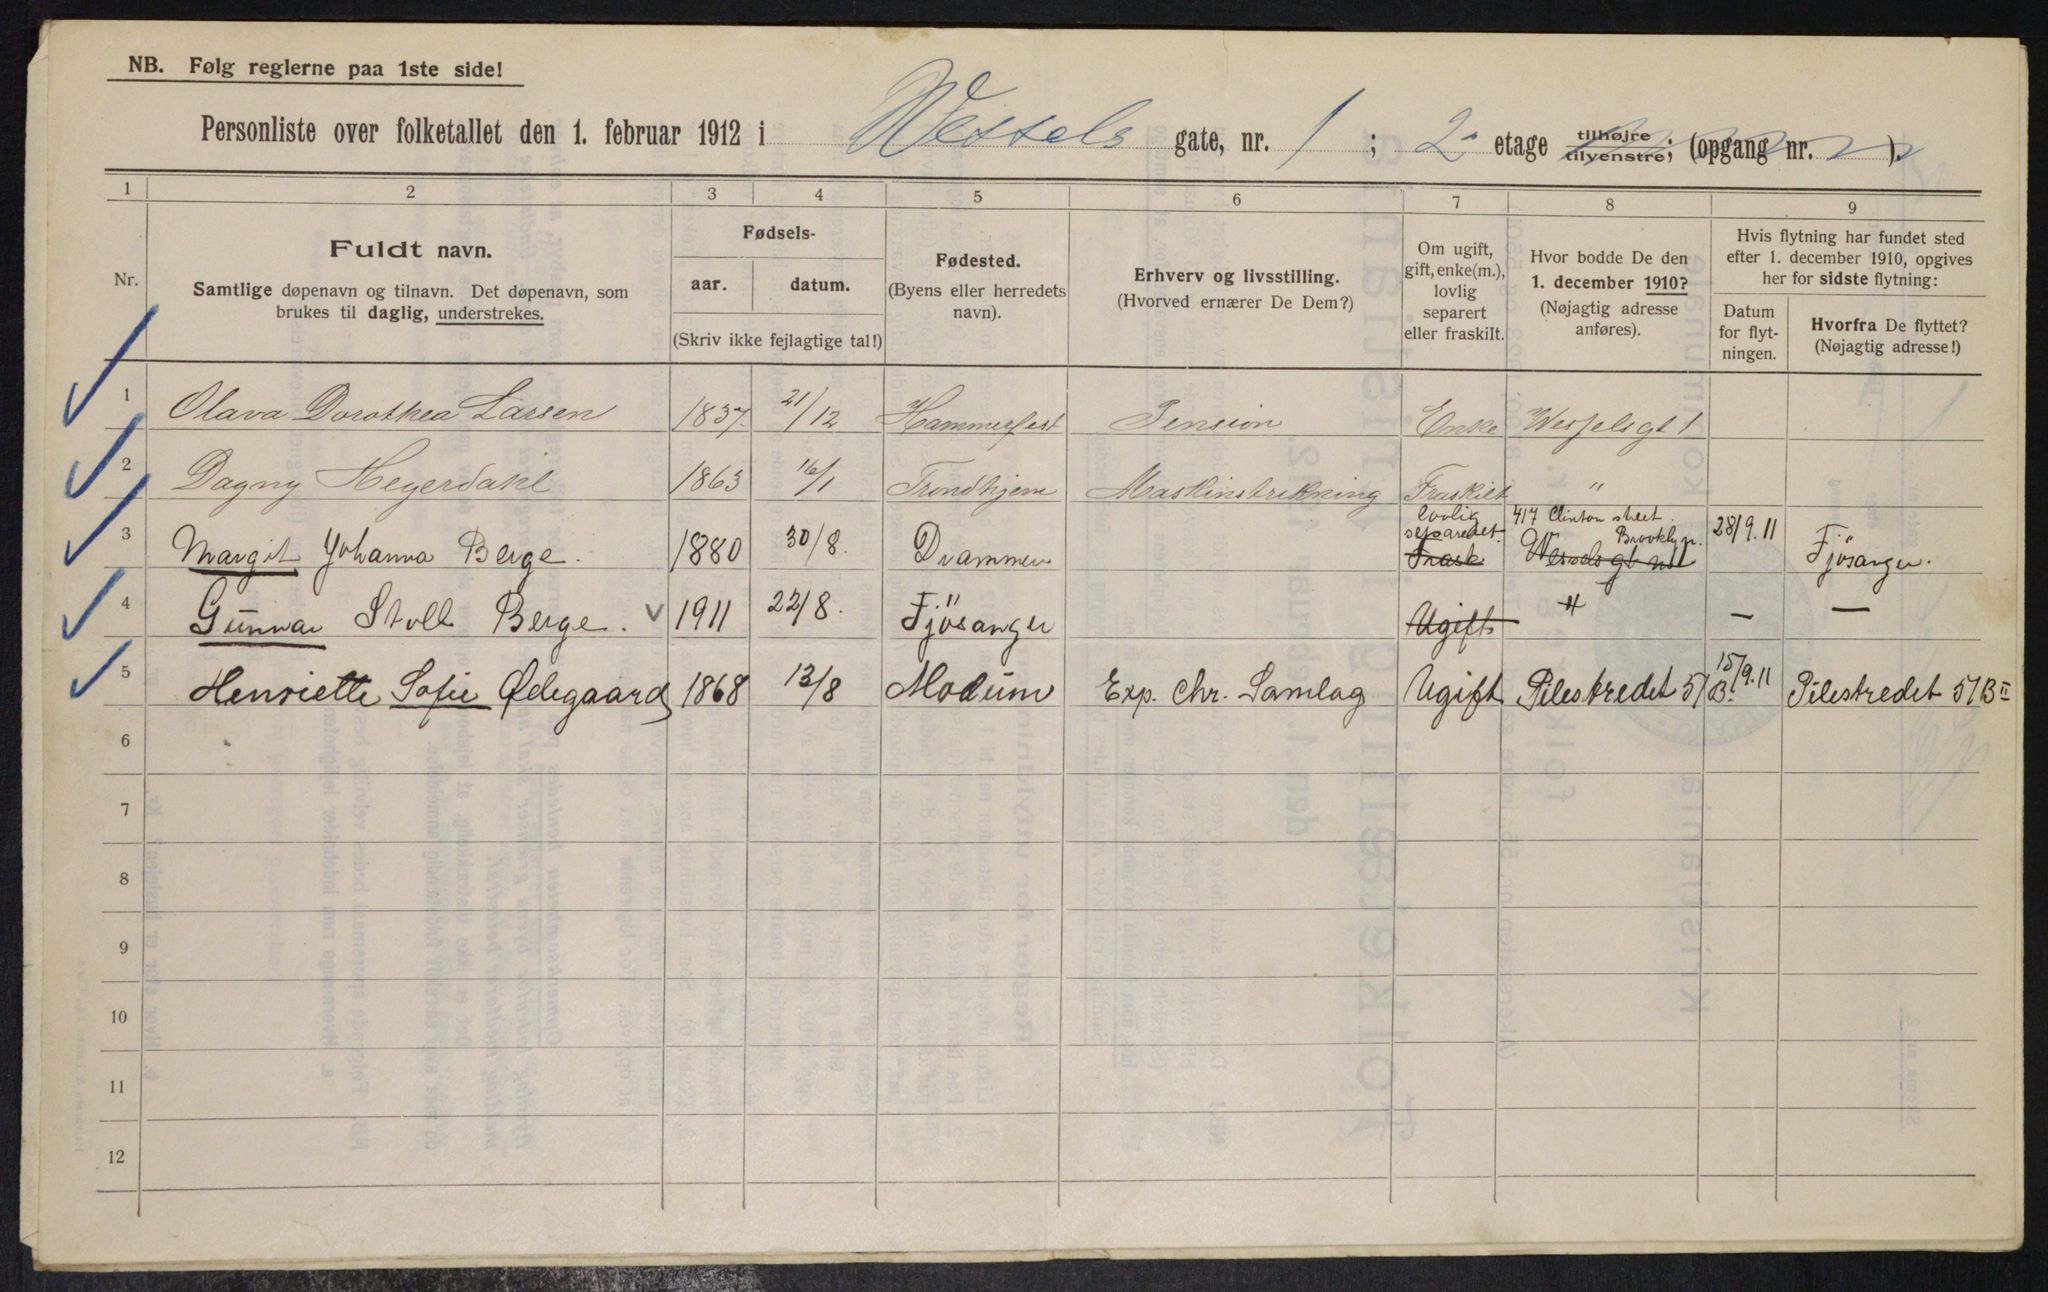 NB. Følg reglerne paa 1ste side!
Personliste over folketallet den 1. februar 1912 i Wessels gate, nr. 1 ; 2 etage tilhøjre tilvenstre; (opgang nr. ).
1 2 3 4 5 6 7 8 9
Nr.
Fuldt navn.
Samtlige døpenavn og tilnavn. Det døpenavn, som
brukes til daglig, understrekes.
Fødsels-
aar. datum.
(Skriv ikke fejlagtige tal!)
Fødested.
(Byens eller herredets
navn).
Erhverv og livsstilling.
(Hvorved ernærer De Dem?)
Om ugift,
gift, enke(m.),
lovlig
separert
eller fraskilt.
Hvor bodde De den
1. december 1910?
(Nøjagtig adresse
anføres).
Hvis flytning har fundet sted
efter 1. december 1910, opgives
her for sidste flytning:
Datum
for flyt-
ningen.
Hvorfra De flyttet?
(Nøjagtig adresse!)
1 Olava Dorothea Larsen 1837 21/12 Hammerfest Pension Enke Wesselsgt 1
2 Dagny Heyerdahl 1863 16/1 Trondhjem Maskinstrikning Fraskilt "
lovlig 417 Clinton street.
separedet. Brooklyn.
3 Margit Johanna Berge. 1880 30/8. Drammen Frask Wesselsgt no 1 28/9.11 Fjösanger.
4 Gunnar Stoll Berge. v 1911 22/8. Fjösanger Ugift " — —
5 Henriette Sofie Ødegaard 1868 13/8 Modum Exp. Chr. Samlag Ugift Pilestredet 51 B. 15/9.11 Pilestredet 51 B II
6
7
8
9
10
11
12